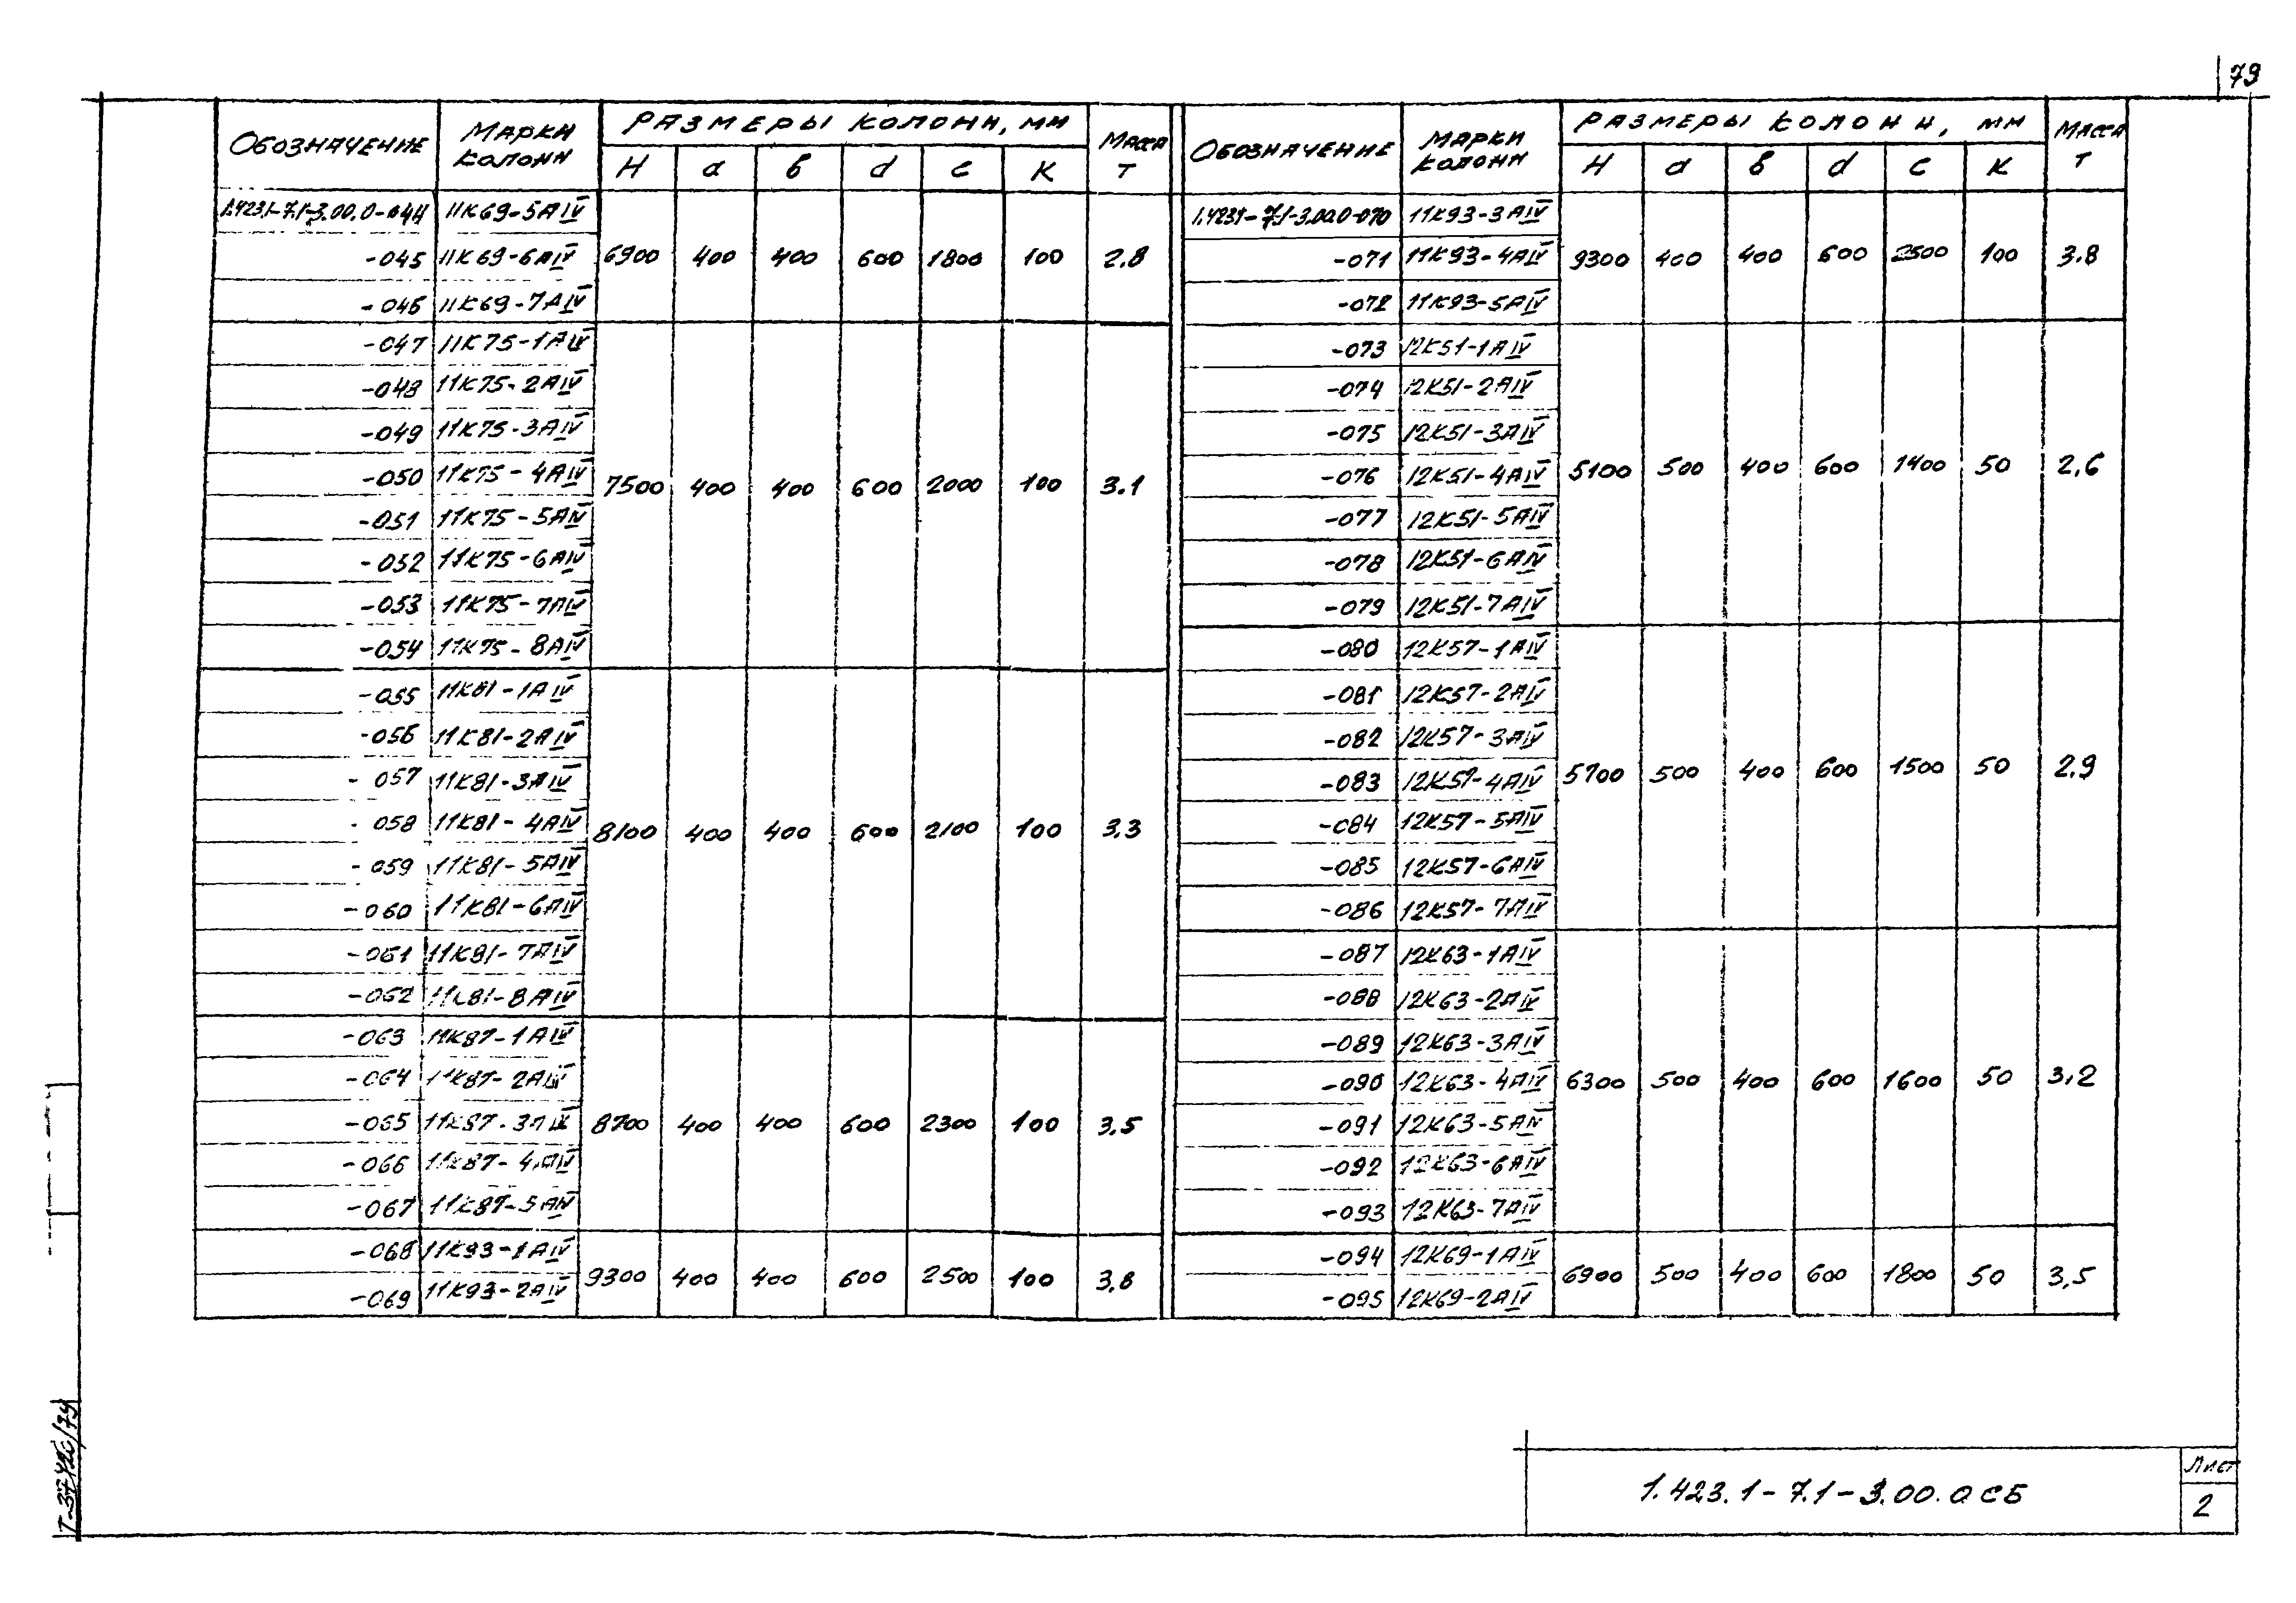 79
Обозначение Марки колонн Размеры колонн, мм Масса т
H a в d c к
1.423.1-7.1-3.00.0-044 11К69-5АIV
-045 11К69-6АIV 6900 400 400 600 1800 100 2.8
-046 11К69-7АIV
-047 11К75-1АIV
-048 11К75-2АIV
-049 11К75-3АIV
-050 11К75-4АIV 7500 400 400 600 2000 100 3.1
-051 11К75-5АIV
-052 11К75-6АIV
-053 11К75-7АIV
-054 11К75-8АIV
-055 11К81-1АIV
-056 11К81-2АIV
-057 11К81-3АIV
-058 11К81-4АIV 8100 400 400 600 2100 100 3.3
-059 11К81-5АIV
-060 11К81-6АIV
-061 11К81-7АIV
-062 11К81-8АIV
-063 11К87-1АIV
-064 11К87-2АIV
-065 11К87-3АIV 8700 400 400 600 2300 100 3.5
-066 11К87-4АIV
-067 11К87-5АIV
-068 11К93-1АIV
9300 400 400 600 2500 100 3.8
-069 11К93-2АIV
Обозначение Марки колонн Размеры колонн, мм Масса т
H a в d c к
1.423.1-7.1-3.00.0-070 11К93-3АIV
-071 11К93-4АIV 9300 400 400 600 2500 100 3.8
-072 11К93-5АIV
-073 12К51-1АIV
-074 12К51-2АIV
-075 12К51-3АIV
-076 12К51-4АIV 5100 500 400 600 1400 50 2.6
-077 12К51-5АIV
-078 12К51-6АIV
-079 12К51-7АIV
-080 12К57-1АIV
-081 12К57-2АIV
-082 12К57-3АIV
-083 12К57-4АIV 5700 500 400 600 1500 50 2.9
-084 12К57-5АIV
-085 12К57-6АIV
-086 12К57-7АIV
-087 12К63-1АIV
-088 12К63-2АIV
-089 12К63-3АIV
-090 12К63-4АIV 6300 500 400 600 1600 50 3.2
-091 12К63-5АIV
-092 12К63-6АIV
-093 12К63-7АIV
-094 12К69-1АIV
6900 500 400 600 1800 50 3.5
-095 12К69-2АIV
1.423.1-7.1-3.00.0СБ
Лист
2